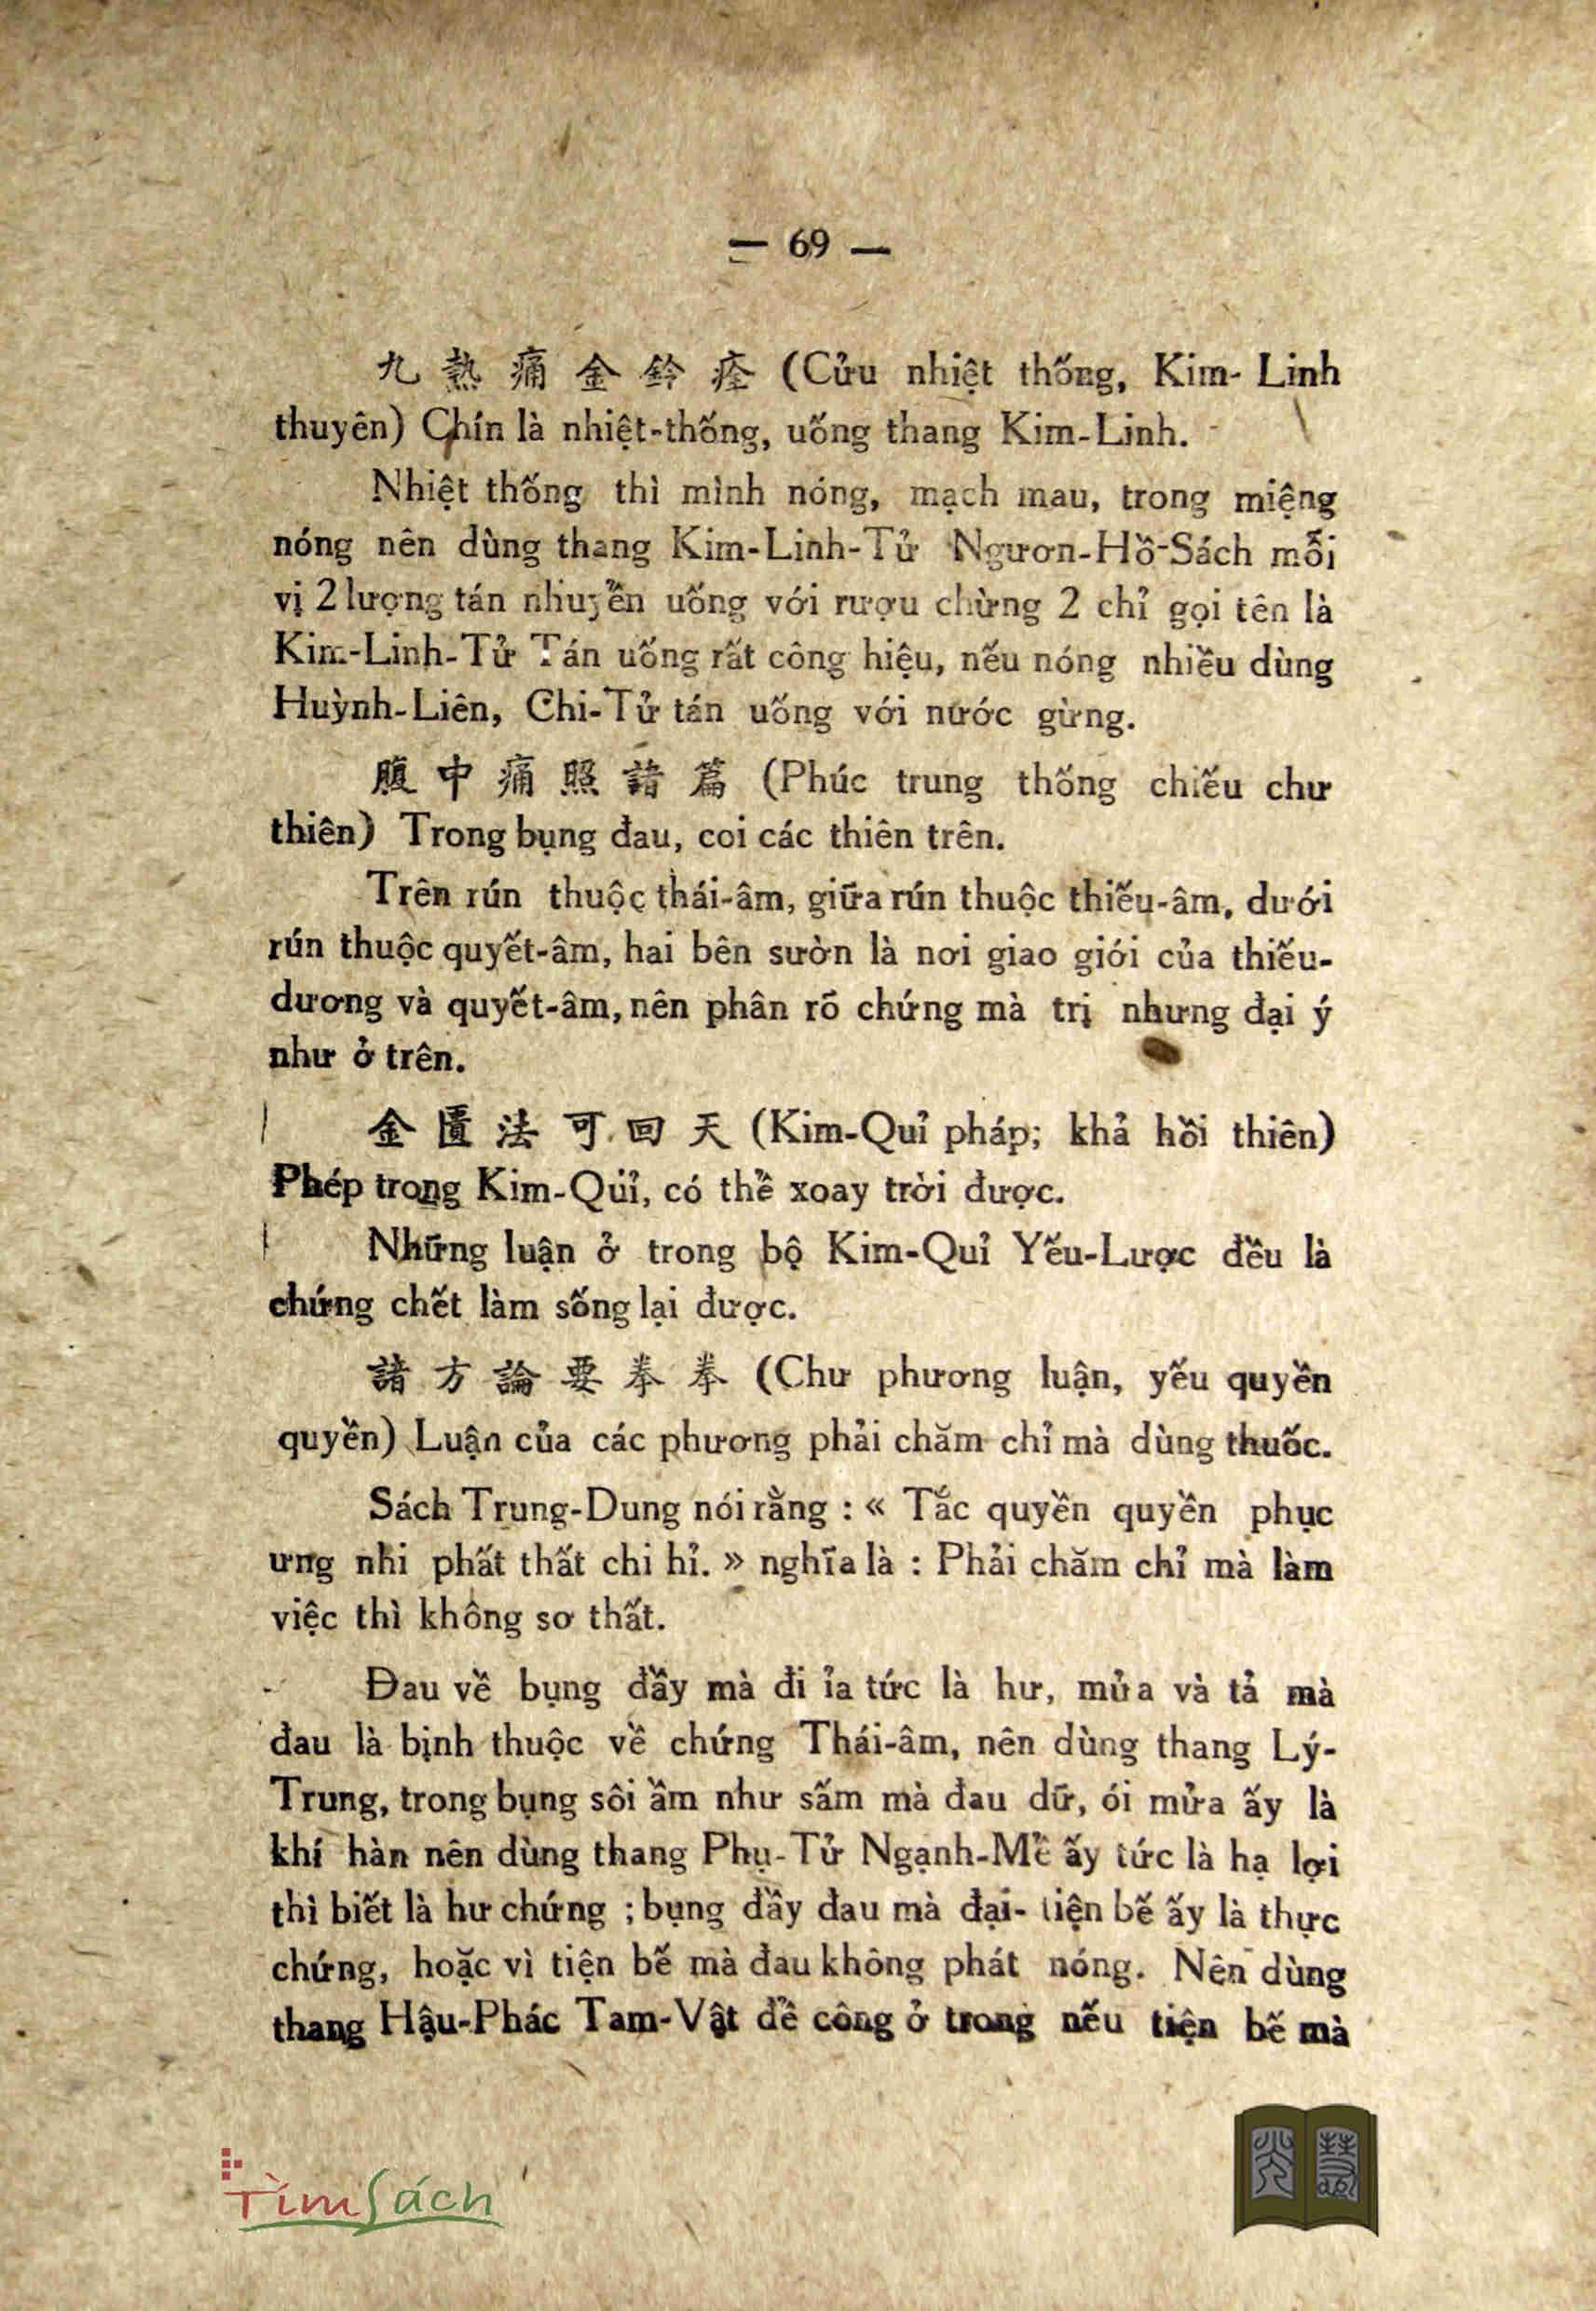 — 69 —
九熱痛金鈴痊 (Cửu nhiệt thống, Kim- Linh
thuyên) Chín là nhiệt-thống, uống thang Kim-Linh.
Nhiệt thống thì mình nóng, mạch mau, trong miệng
nóng nên dùng thang Kim-Linh-Tử Ngươn-Hồ-Sách mỗi
vị 2 lượng tán nhuyễn uống với rượu chừng 2 chỉ gọi tên là
Kim-Linh-Tử Tán uống rất công hiệu, nếu nóng nhiều dùng
Huỳnh-Liên, Chi-Tử tán uống với nước gừng.
腹中痛照諸篇 (Phúc trung thống chiếu chư
thiên) Trong bụng đau, coi các thiên trên.
Trên rún thuộc thái-âm, giữa rún thuộc thiếu-âm, dưới
rún thuộc quyết-âm, hai bên sườn là nơi giao giới của thiếu-
dương và quyết-âm, nên phân rõ chứng mà trị nhưng đại ý
như ở trên.
金匱法可回天 (Kim-Quỉ pháp; khả hồi thiên)
Phép trong Kim-Qủi, có thể xoay trời được.
Những luận ở trong bộ Kim-Quỉ Yếu-Lược đều là
chứng chết làm sống lại được.
諸方論要拳拳 (Chư phương luận, yếu quyền
quyền) Luận của các phương phải chăm chỉ mà dùng thuốc.
Sách Trung-Dung nói rằng : « Tắc quyền quyền phục
ưng nhi phất thất chi hỉ. » nghĩa là : Phải chăm chỉ mà làm
việc thì không sơ thất.
Đau về bụng đầy mà đi ỉa tức là hư, mửa và tả mà
đau là bịnh thuộc về chứng Thái-âm, nên dùng thang Lý-
Trung, trong bụng sôi ầm như sấm mà đau dữ, ói mửa ấy là
khí hàn nên dùng thang Phụ-Tử Ngạnh-Mề ấy tức là hạ lợi
thì biết là hư chứng ; bụng đầy đau mà đại- tiện bế ấy là thực
chứng, hoặc vì tiện bế mà đau không phát nóng. Nên dùng
thang Hậu-Phác Tam-Vật để công ở trong nếu tiện bế mà
TìmSách